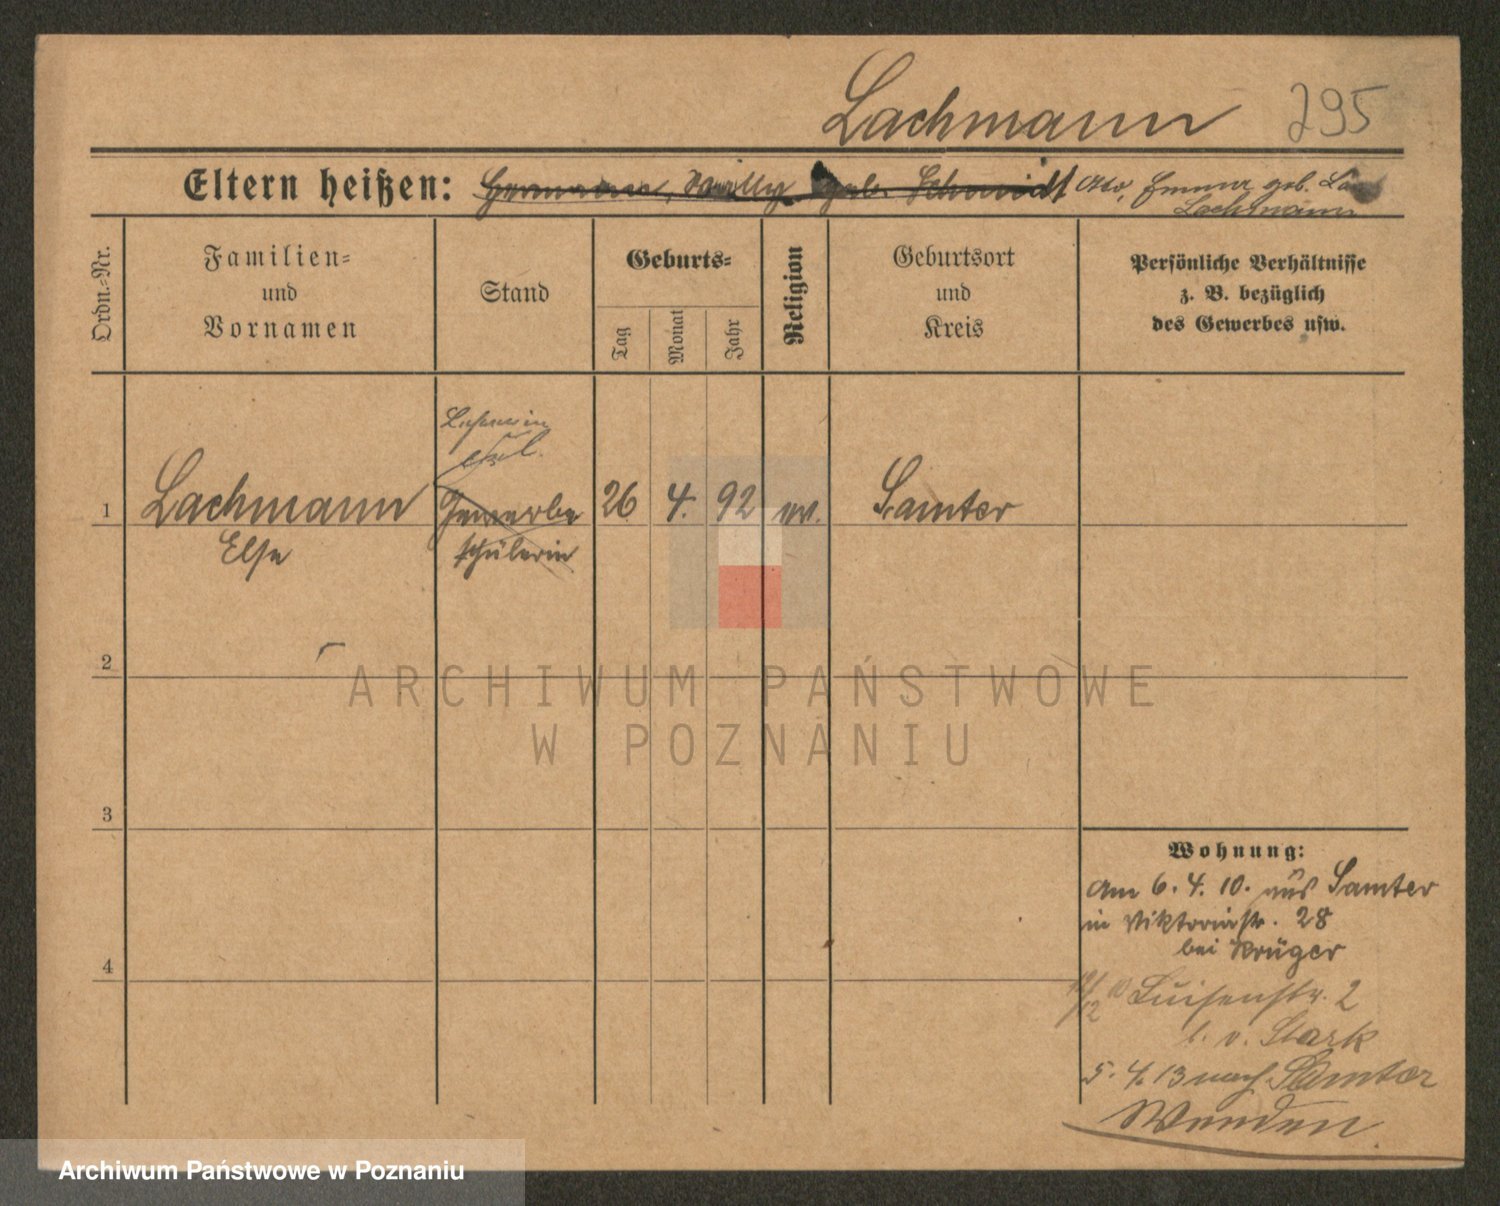 Lachmann 295
Eltern heißen: Hermann, Willy geb. Schmidt Otto, Emma geb.
Lachmann
Ordn.-Nr.
Familien-
und
Vornamen
Stand
Geburts-
Tag
Monat
Jahr
Religion
Geburtsort
und
Kreis
Persönliche Verhältnisse
z. B. bezüglich
des Gewerbes usw.
Lehrerin
1 Lachmann Gewerbe 26 4. 92 ev. Samter
Else schülerin
2
3
4
Wohnung:
Am 6. 4. 10. aus Samter
in Viktoriastr. 28
bei Krüger
Luisenstr. 2
b. v. Stark
5. 4. 13 nach Samter
ARCHIWUM PAŃSTWOWE
W POZNANIU
Archiwum Państwowe w Poznaniu